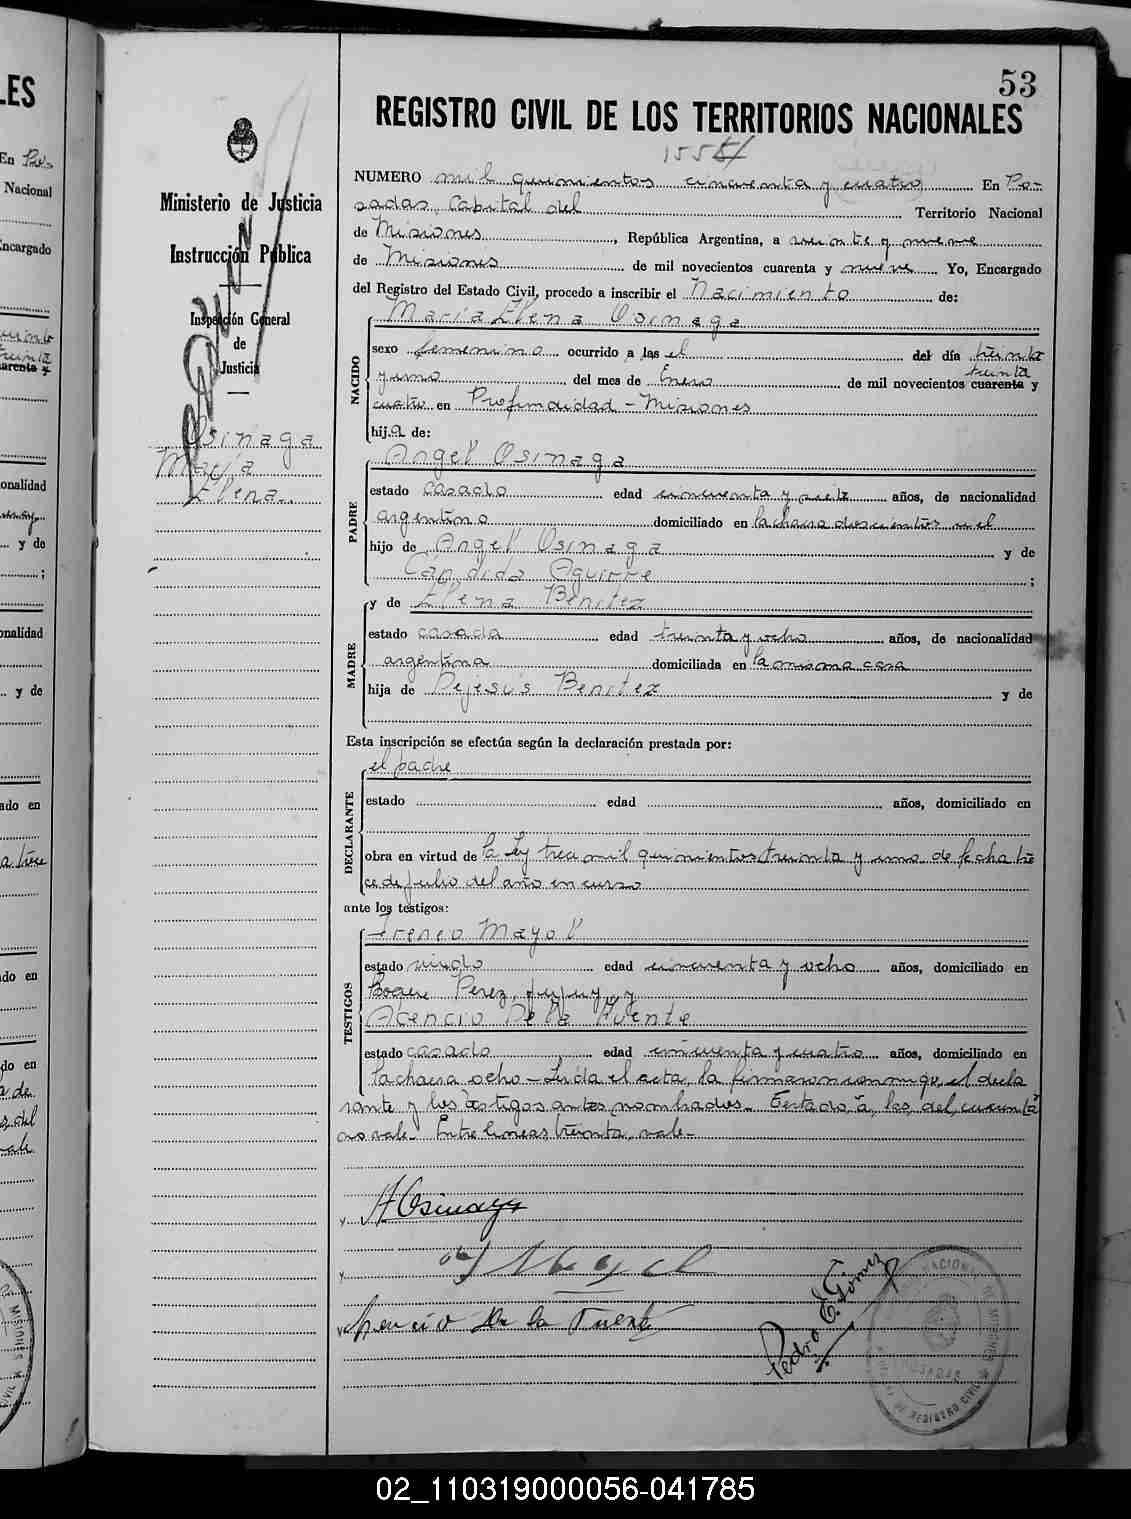 53
REGISTRO CIVIL DE LOS TERRITORIOS NACIONALES
1554
Ministerio de Justicia
Instrucción Pública
Inspección General
de
Justicia
Osinaga
María
Elena
NUMERO mil quinientos cincuenta y cuatro En Po-
sadas, Capital del Territorio Nacional
de Misiones, República Argentina, a veinte y nueve
de Misiones de mil novecientos cuarenta y nueve Yo, Encargado
del Registro del Estado Civil, procedo a inscribir el Nacimiento de:
María Elena Osinaga
NACIDO
sexo femenino ocurrido a las el del día treinta
treinta
y uno del mes de Enero de mil novecientos cuarenta y
cuatro en Profundidad - Misiones
hija de:
Angel Osinaga
PADRE
estado casado edad cincuenta y siete años, de nacionalidad
argentino domiciliado en la chacra doscientos
hijo de Angel Osinaga y de
Candida Aguirre ;
y de Elena Benitez
MADRE
estado casada edad treinta y ocho años, de nacionalidad
argentina domiciliada en la misma casa
hija de Dejesús Benitez y de
Esta inscripción se efectúa según la declaración prestada por:
el padre
DECLARANTE
estado edad años, domiciliado en
obra en virtud de la Ley trece mil quinientos treinta y uno de fecha tre
ce de julio del año en curso
ante los testigos:
Ireneo Mayol
TESTIGOS
estado viudo edad cincuenta y ocho años, domiciliado en
Roque Perez, jujuy, y
Acencio De la Fuente
estado casado edad cincuenta y cuatro años, domiciliado en
la chacra ocho - Leida el acta, la firmaron conmigo, el decla
rante y los testigos antes nombrados. Testado a, las, del, cuarenta
no vale. Entre lineas treinta, vale.-
y AOsinaga
y Mayol
y Acencio De la Fuente
Pedro E. Gómez
02_110319000056-041785